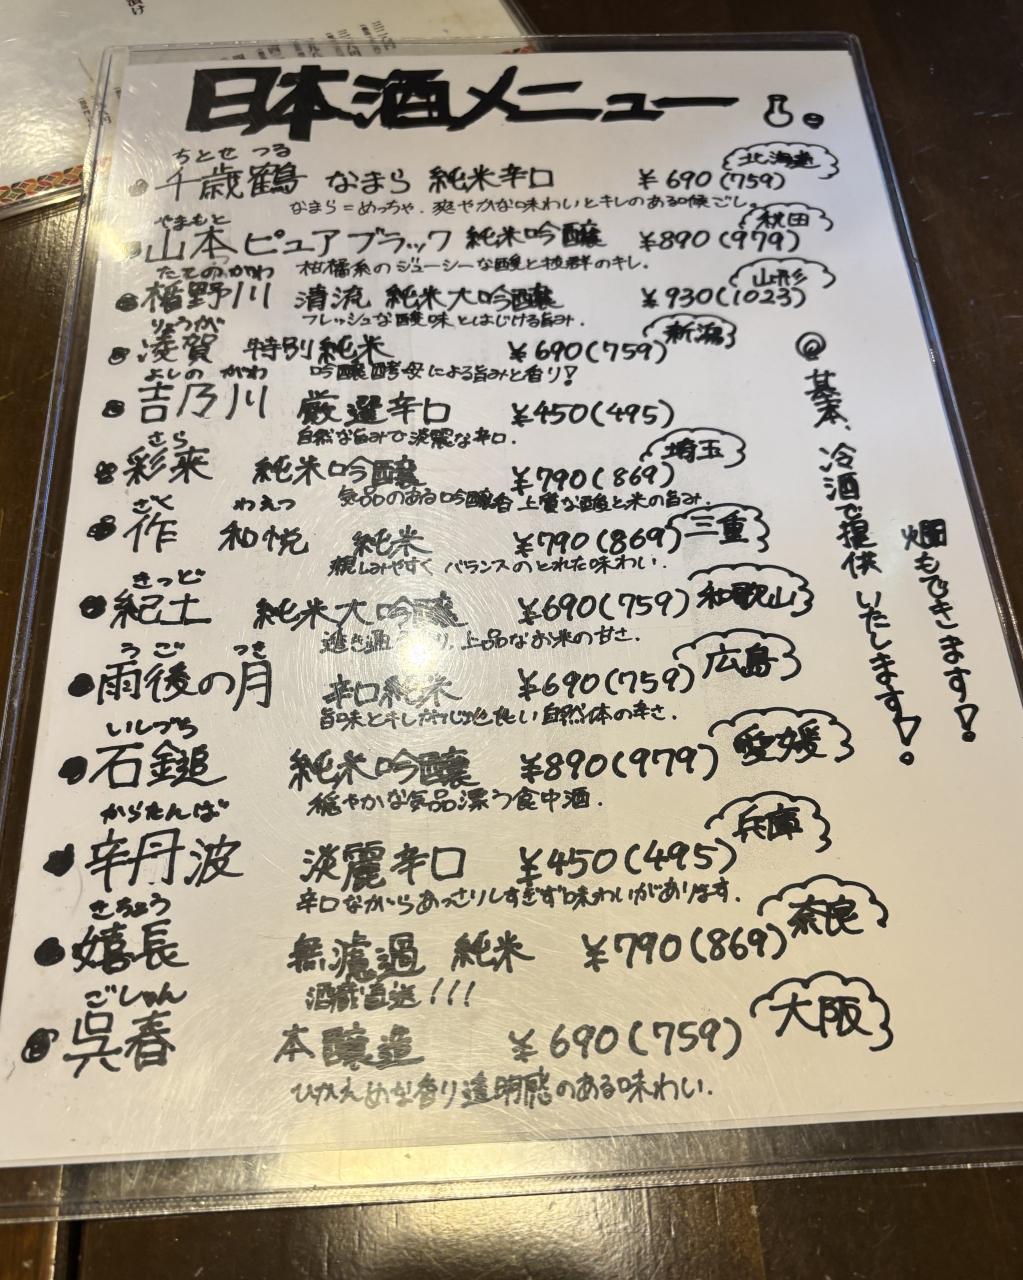 日本酒メニュー
ちとせ つる
千歳鶴 なまら 純米辛口 ¥690(759) 北海道
なまら=めっちゃ. 爽やかな味わいとキレのある喉ごし。
やまもと
山本ピュアブラック 純米吟醸 ¥890(979) 秋田
柑橘系のジューシーな酸と抜群のキレ.
たてのかわ
楯野川 清流 純米大吟醸 ¥930(1023) 山形
フレッシュな酸味とはじける旨み.
りょうが
凌賀 特別純米 ¥690(759) 新潟
吟醸酵母による旨みと香り!
よしの がわ
吉乃川 厳選辛口 ¥450(495)
自然な旨みで淡麗な辛口.
さら
彩來 純米吟醸 ¥790(869) 埼玉
気品のある吟醸香 上質な酸と米の旨み.
ざく わえつ
作 和悦 純米 ¥790(869) 三重
親しみやすく バランスのとれた味わい.
きっど
紀土 純米大吟醸 ¥690(759) 和歌山
透き通 り, 上品なお米の甘さ.
うご つき
雨後の月 辛口純米 ¥690(759) 広島
旨味とキレが 地良い自然体の辛さ.
いしづち
石鎚 純米吟醸 ¥890(979) 愛媛
穏やかな気品漂う食中酒.
からたんば
辛丹波 淡麗辛口 ¥450(495) 兵庫
辛口ながらあっさりしすぎず味わいがあります.
きちょう
嬉長 無濾過 純米 ¥790(869) 奈良
酒蔵直送!!!
ごしゅん
呉春 本醸造 ¥690(759) 大阪
ひかえめな香り透明感のある味わい.
◎基本、冷酒で提供いたします!
燗もできます!